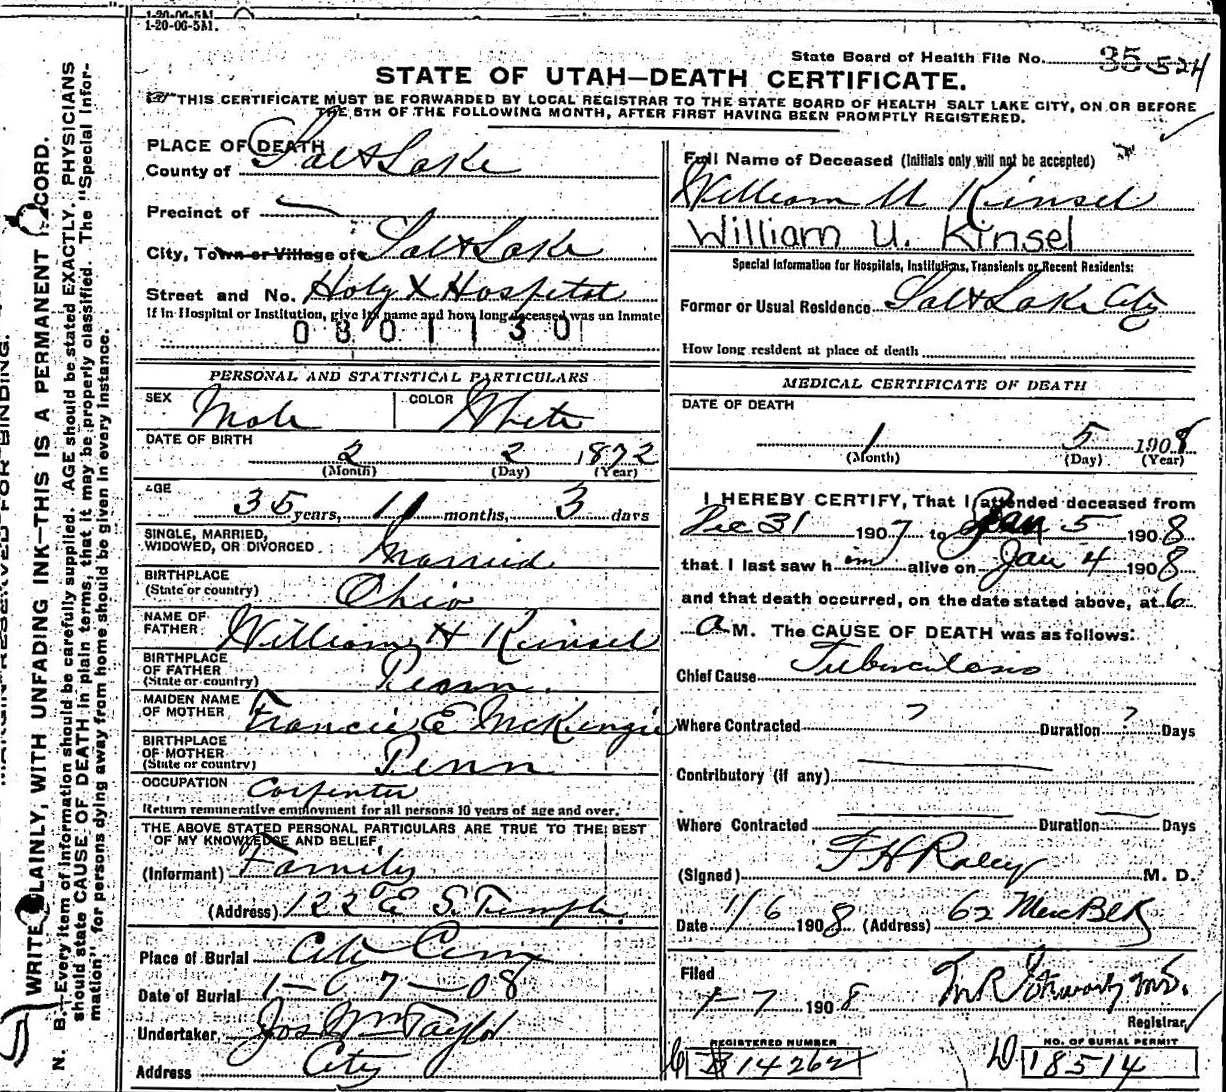 1-20-06-5M.
1-20-06-5M.
State Board of Health File No. 35524
STATE OF UTAH—DEATH CERTIFICATE.
THIS CERTIFICATE MUST BE FORWARDED BY LOCAL REGISTRAR TO THE STATE BOARD OF HEALTH SALT LAKE CITY, ON OR BEFORE
THE 5TH OF THE FOLLOWING MONTH, AFTER FIRST HAVING BEEN PROMPTLY REGISTERED.
PLACE OF DEATH
County of Salt Lake
Precinct of —
City, Town or Village of Salt Lake
Street and No. Holy X Hospital
If in Hospital or Institution, give its name and how long deceased was an Inmate
0801130
PERSONAL AND STATISTICAL PARTICULARS
SEX Male COLOR White
DATE OF BIRTH
2 2 1872
(Month) (Day) (Year)
AGE
35 years, 11 months, 3 days
SINGLE, MARRIED,
WIDOWED, OR DIVORCED Married
BIRTHPLACE
(State or country) Ohio
NAME OF
FATHER William H Kinsel
BIRTHPLACE
OF FATHER
(State or country) Penn.
MAIDEN NAME
OF MOTHER Francis E McKingie
BIRTHPLACE
OF MOTHER
(State or country) Penn
OCCUPATION Carpenter
Return remunerative employment for all persons 10 years of age and over.
THE ABOVE STATED PERSONAL PARTICULARS ARE TRUE TO THE BEST
OF MY KNOWLEDGE AND BELIEF
(Informant) Family
(Address) 122 E S. Temple.
Place of Burial City Cem
Date of Burial 1-7-08
Undertaker, Jos Wm Taylor
Address City
Full Name of Deceased (Initials only will not be accepted)
William U Kinsel
William U. Kinsel
Special Information for Hospitals, Institutions, Transients or Recent Residents:
Former or Usual Residence Salt Lake City
How long resident at place of death
MEDICAL CERTIFICATE OF DEATH
DATE OF DEATH
1 5 1908
(Month) (Day) (Year)
I HEREBY CERTIFY, That I attended deceased from
Dec 31 1907 to Jan 5 1908
that I last saw him alive on Jan 4 1908
and that death occurred, on the date stated above, at 6
a M. The CAUSE OF DEATH was as follows:
Chief Cause Tuberculosis
Where Contracted ? Duration ? Days
Contributory (if any) —
Where Contracted — Duration — Days
(Signed) F H Raley M. D.
Date 1/6 1908 (Address) 62 Merc Blk
Filed
1-7 1908 M.D.
Registrar
REGISTERED NUMBER
14262
NO. OF BURIAL PERMIT
D 18514
MARGIN RESERVED FOR BINDING.
WRITE PLAINLY, WITH UNFADING INK—THIS IS A PERMANENT RECORD.
N. B.—Every item of information should be carefully supplied. AGE should be stated EXACTLY. PHYSICIANS
should state CAUSE OF DEATH in plain terms, that it may be properly classified. The "Special Infor-
mation" for persons dying away from home should be given in every instance.